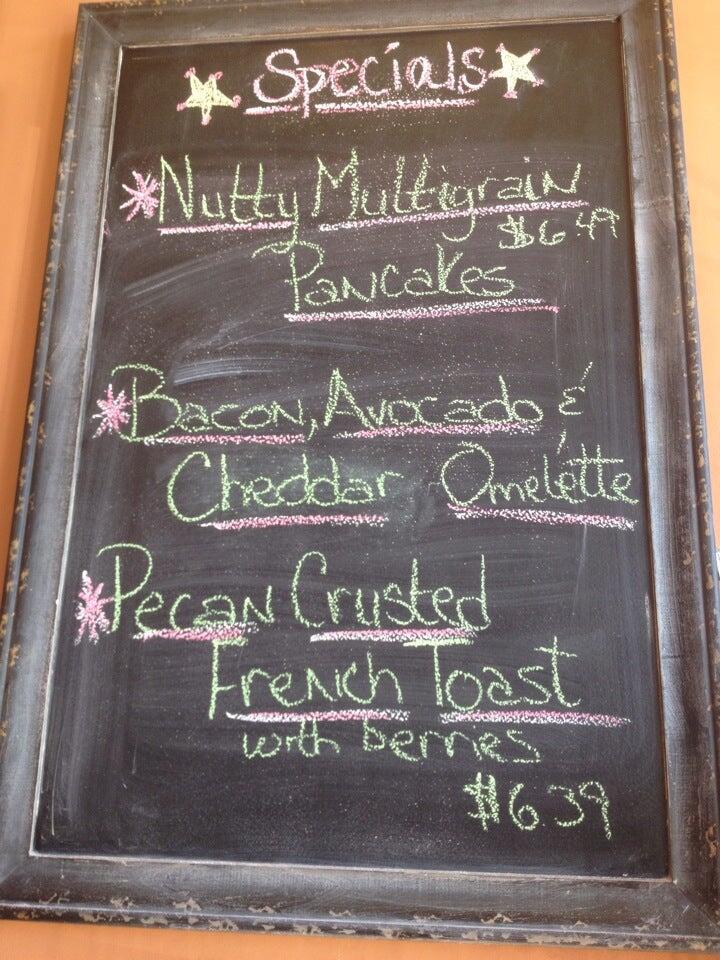 Specials
Nutty Multigrain
$6.49
Pancakes
Bacon, Avocado &
Cheddar Omelette
Pecan Crusted
French Toast
with berries
$6.39